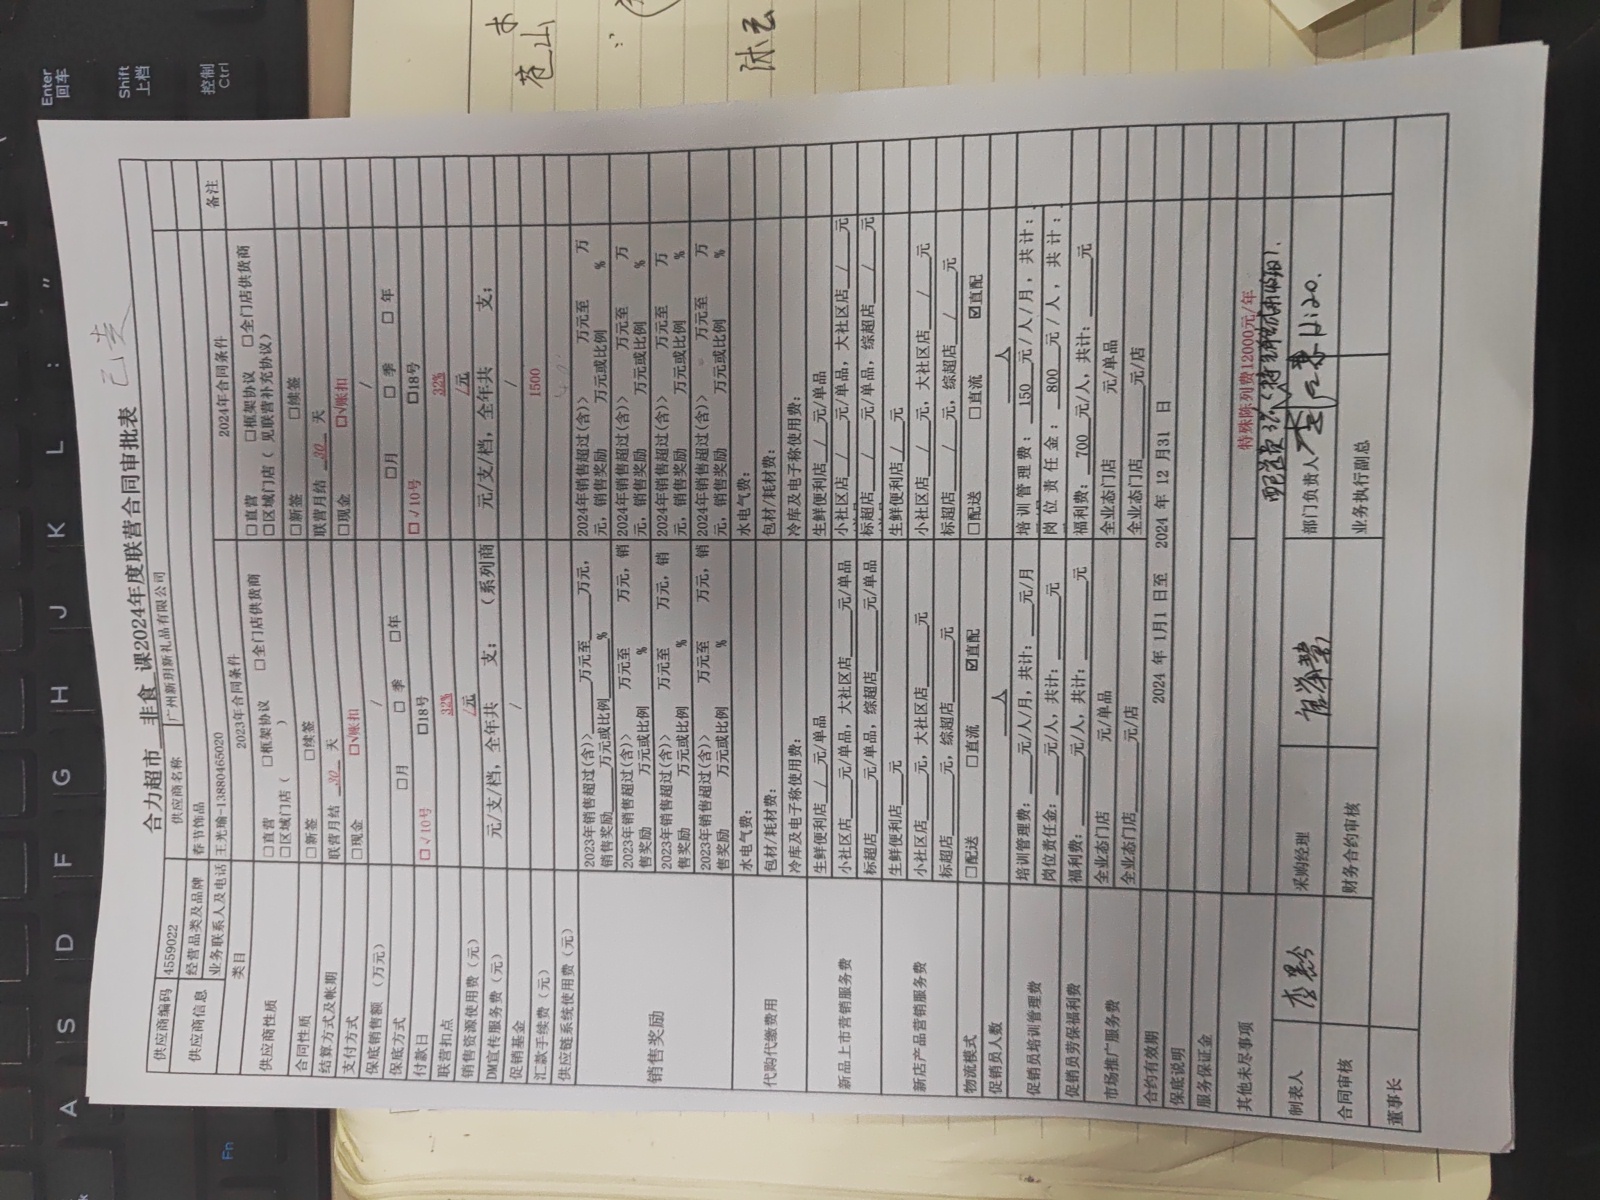 合力超市 非食 课2024年度联营合同审批表
供应商编码 4559022 供应商名称 广州新玥新礼品有限公司
供应商信息 经营品类及品牌 春节饰品
业务联系人及电话 王光瑜-13880465020
类目 2023年合同条件 2024年合同条件 备注
供应商性质 □直营 □框架协议 □全门店供货商 □直营 □框架协议 □全门店供货商
□区域门店（ ） □区域门店（ 见联营补充协议）
合同性质 □新签 □续签 □新签 □续签
结算方式及帐期 联营月结 30 天 联营月结 30 天
支付方式 □现金 □√账扣 □现金 □√账扣
保底销售额（万元） / /
保底方式 □月 □季 □年 □月 □季 □年
付款日 □√10号 □18号 □√10号 □18号
联营扣点 32% 32%
销售资源使用费（元） /元 /元
DM宣传服务费（元） 元/支/档，全年共 支；（系列商 元/支/档，全年共 支；
促销基金 / /
汇款手续费（元） 1500
供应链系统使用费（元）
销售奖励 2023年销售超过(含)>____万元至____万元，销售奖励____万元或比例____% 2024年销售超过(含)> 万元至 万元，销售奖励 万元或比例 %
2023年销售超过(含)> 万元至 万元，销售奖励 万元或比例 % 2024年销售超过(含)> 万元至 万元，销售奖励 万元或比例 %
2023年销售超过(含)> 万元至 万元，销售奖励 万元或比例 % 2024年销售超过(含)> 万元至 万元，销售奖励 万元或比例 %
2023年销售超过(含)> 万元至 万元，销售奖励 万元或比例 % 2024年销售超过(含)> 万元至 万元，销售奖励 万元或比例 %
代购代缴费用 水电气费： 水电气费：
包材/耗材费： 包材/耗材费：
冷库及电子称使用费： 冷库及电子称使用费：
新品上市营销服务费 生鲜便利店__/__元/单品 生鲜便利店__/__元/单品
小社区店____元/单品，大社区店____元/单品 小社区店__/__元/单品，大社区店__/__元
标超店____元/单品，综超店____元/单品 标超店__/__元/单品，综超店__/__元
新店产品营销服务费 生鲜便利店____元 生鲜便利店__/__元
小社区店____元，大社区店____元 小社区店__/__元，大社区店__/__元
标超店____元，综超店____元 标超店__/__元，综超店__/__元
物流模式 □配送 □直流 ☑直配 □配送 □直流 ☑直配
促销员人数 ____人 ____人
促销员培训管理费 培训管理费：____元/人/月，共计：____元/月 培训管理费：150 元/人/月，共计：
岗位责任金：____元/人，共计：____元 岗位责任金：800 元/人，共计：
促销员劳保福利费 福利费：____元/人，共计：____元 福利费：700 元/人，共计：____元
市场推广服务费 全业态门店 元/单品 全业态门店 元/单品
全业态门店____元/店 全业态门店____元/店
合约有效期 2024 年 1月1 日至 2024 年 12 月31 日
保底说明
服务保证金
其他未尽事项 特殊陈列费12000元/年
制表人 采购经理 部门负责人
合同审核 财务合约审核 业务执行副总
董事长
苍山
Enter
回车
Shift
上档
控制
Ctrl
A S D F G H J K L : "
Fn